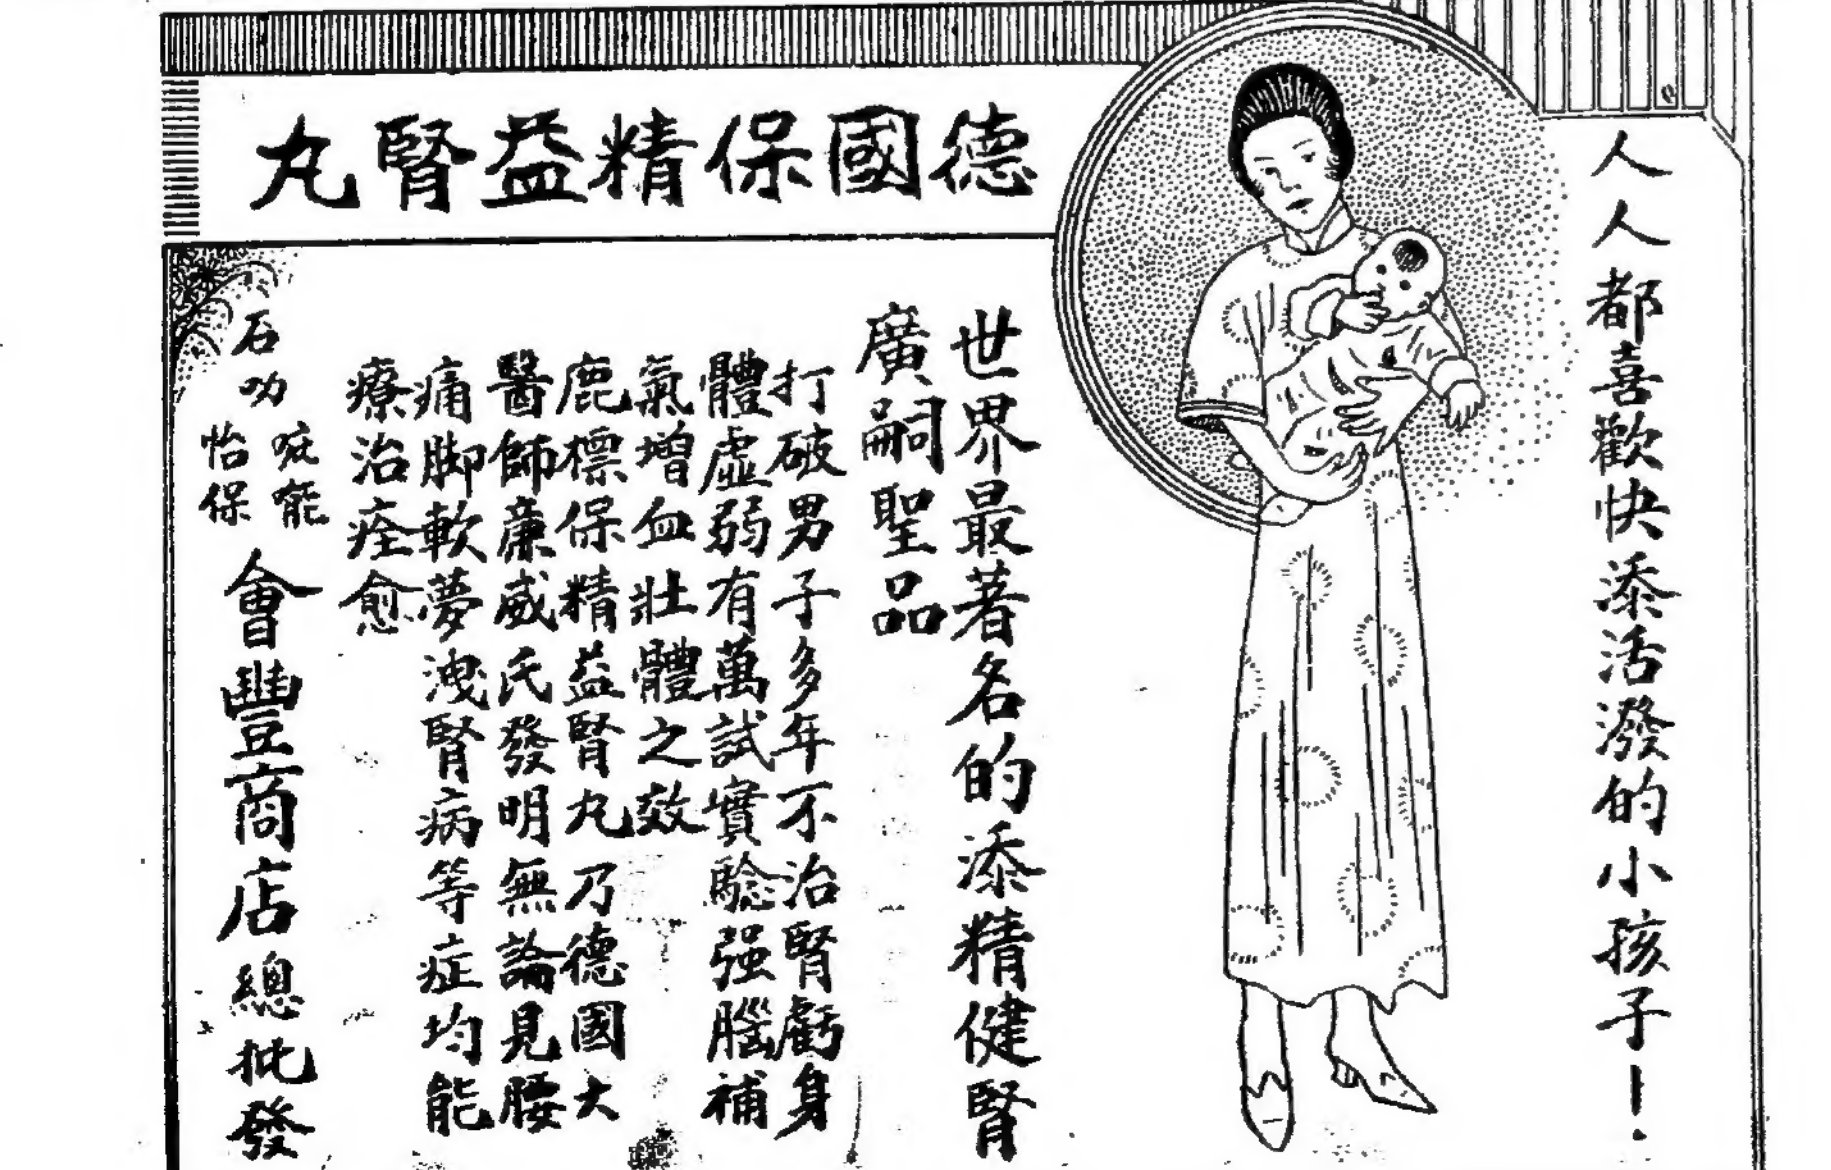 德國保精益腎丸
人人都喜歡快添活潑的小孩子！
世界最著名的添精健腎
廣嗣聖品
打破男子多年不治腎虧身
體虛弱有萬試實驗强腦補
氣增血壯體之效
鹿標保精益腎丸乃德國大
醫師廉威氏發明無論見腰
痛脚軟夢洩腎病等症均能
療治痊愈
石叻
庇能
怡保
會豐商店總批發